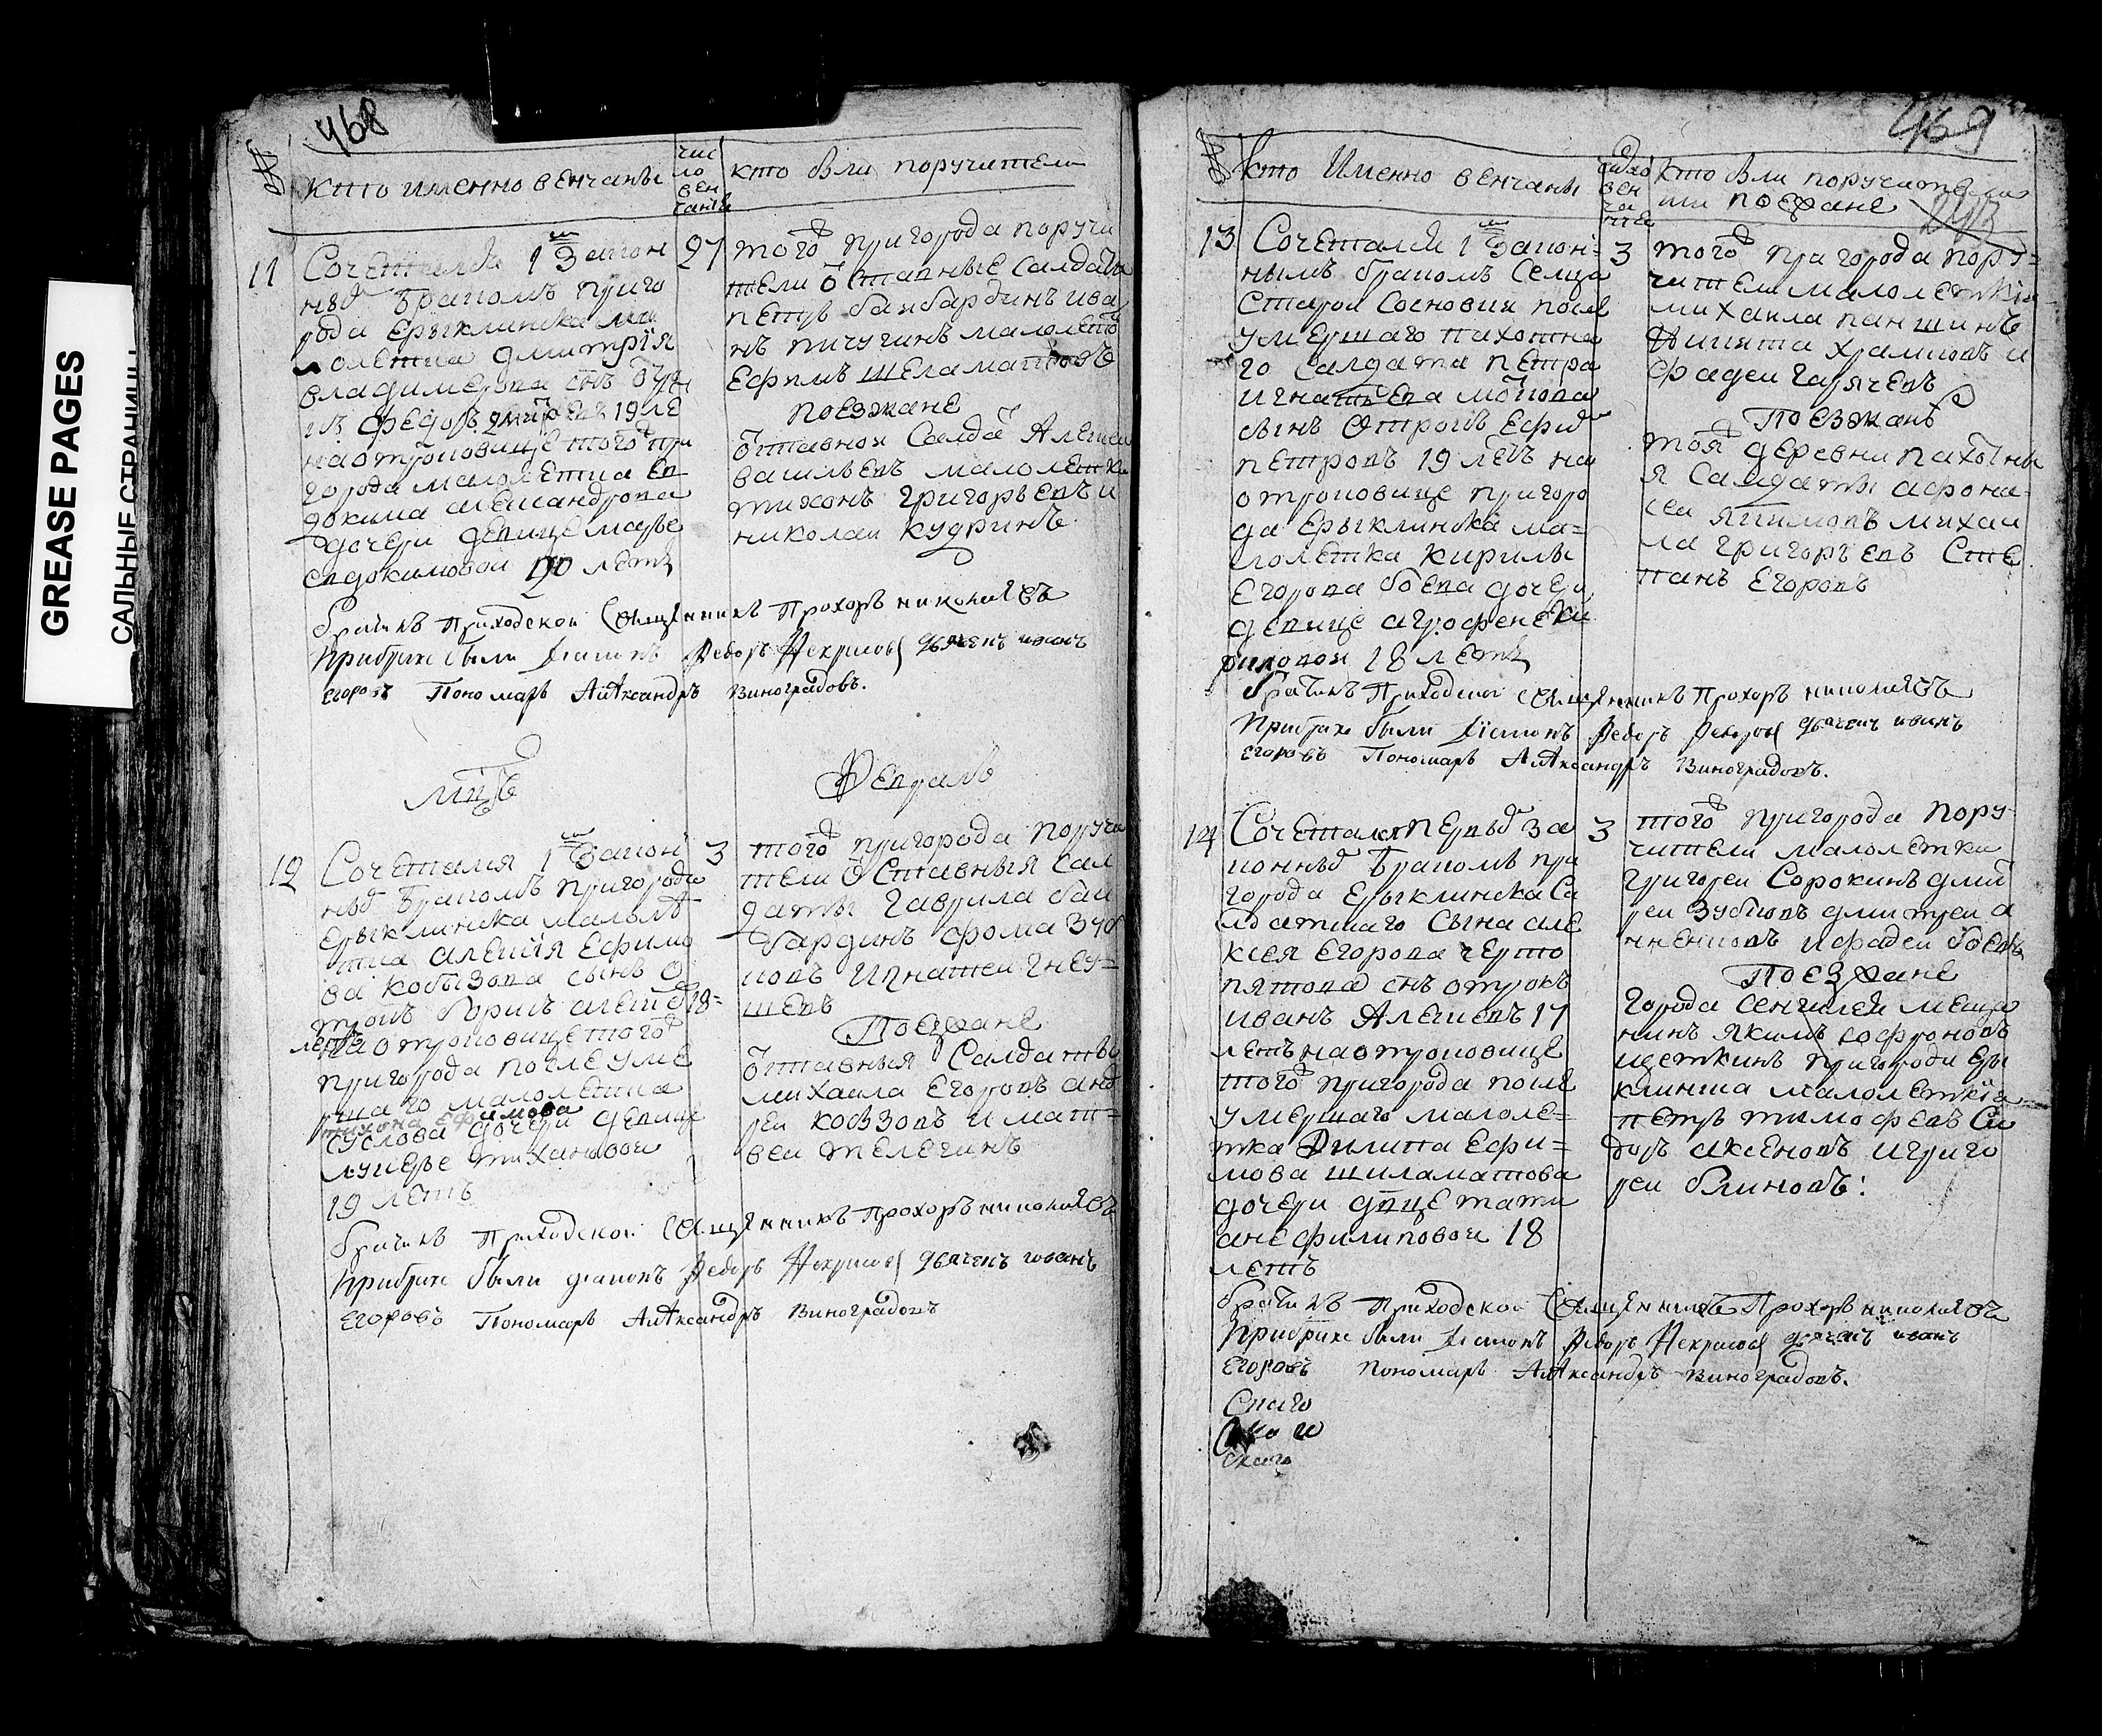 GREASE PAGES
САЛЬНЫЕ СТРАНИЦЫ
468
№
кто именно венчаны
чис
ло
вен
чанїе
кто были поручители
11
Сочетался 1 закон
ным браком приго
рода Ерыклинска ма
лолетка дмитрїя
владимерова снъ отро
къ федоръ дмитревъ 19 ле
на отроковице того при
города малолетка ев
докима александрова
дочери девице марье
евдокимовой 20 летъ
27
того пригорода поручи
тели отставные салдаты
петръ банбардинъ ива
нъ пичугинъ малолетокъ
Ефимъ шеламатовъ
поезжане
отставной салдатъ Алексей
васильевъ малолетки
тихонъ григорьевъ и
николай кудринъ
бракъ Приходской Священникъ Прохоръ николаевъ
При браке были диаконъ Федоръ Некрасовъ дьячекъ иванъ
Егоровъ Пономарь Александръ Виноградовъ.
мцъ
Февраль
12
Сочетался 1 закон
ным браком пригорода
Ерыклинска малолет
ка алексїя Ефимо
ва кобызова сынъ о
трокъ борисъ алексеевъ 18
летъ на отроковице того
пригорода после уме
ршаго малолетка
тихона Ефимова
суслова дочери девице
лукерье тихановой
19 летъ
3
того пригорода поручи
тели отставныя сал
даты гаврила бан
бардинъ фома зуб
ковъ игнатей гнеу
шевъ
Поезжане
отставныя салдаты
михаила Егоровъ анд
рей кобзовъ и мат
вей телегинъ
бракъ Приходской Священникъ Прохоръ николаевъ
При браке были диаконъ Федоръ Некрасовъ дьячекъ иванъ
Егоровъ Пономарь Александръ Виноградовъ
469
№
кто Именно венчаны
число
вен
ча
нїе
кто были поручители
или поезжане
13
Сочетался 1 закон=
нымъ бракомъ селца
Старой Сосновки после
умершаго пахотна
го салдата петра
игнатьева
сынъ отрокъ Ефим
петровъ 19 летъ на
отроковице пригоро
да Ерыклинска ма=
лолетка кирилы
Егорова боева дочери
девице агрофене Ки
риловой 18 летъ
3
того пригорода пору=
чители малолетки
михаила паншинъ
Никита храмковъ и
фадей гарячевъ
Поезжанъ
тоя деревни пахотны
я салдаты афона
сей якимовъ михаи
ла григорьевъ сте
панъ Егоровъ
бракъ Приходской Священникъ Прохоръ николаевъ
При браке были диаконъ Федоръ дьячекъ иванъ
Егоровъ Пономарь Александръ Виноградовъ.
14
Сочетался первым за
конным браком при
города Ерыклинска са
лдатскаго сына але
ксея Егорова черто
пятова снъ отрокъ
иванъ Алексевъ 17
летъ на отроковице
того пригорода после
умершаго малоле=
тка Филипа Ефи=
мова шиламатова
дочери двце тати
ане филиповой 18
летъ
3
того пригорода пору
чители малолетки
григорей Сорокинъ
дмитрей а
и фадей боевъ
Поезжане
города сенгилея меща
нинъ якимъ софроновъ
щеткинъ пригорода еры
клинска малолетки
петръ тимофевъ си
доръ аксеновъ и григо
рей блиновъ:
бракъ Приходской Священникъ Прохоръ николаевъ
При браке были диаконъ Федоръ Некрасовъ дьячекъ иванъ
Егоровъ пономарь Александръ Виноградовъ.
Скаго
скаго